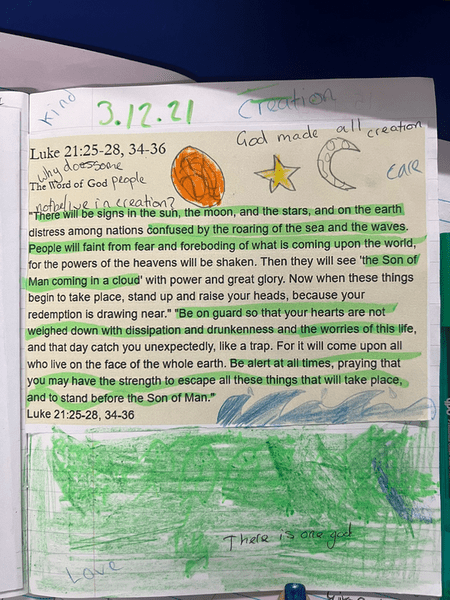 Kind
3.12.21
Creation
God made all creation
Luke 21:25-28, 34-36
why does some
The Word of God people
not belive in creation?
care
"There will be signs in the sun, the moon, and the stars, and on the earth
distress among nations confused by the roaring of the sea and the waves.
People will faint from fear and foreboding of what is coming upon the world,
for the powers of the heavens will be shaken. Then they will see 'the Son of
Man coming in a cloud' with power and great glory. Now when these things
begin to take place, stand up and raise your heads, because your
redemption is drawing near." "Be on guard so that your hearts are not
weighed down with dissipation and drunkenness and the worries of this life,
and that day catch you unexpectedly, like a trap. For it will come upon all
who live on the face of the whole earth. Be alert at all times, praying that
you may have the strength to escape all these things that will take place,
and to stand before the Son of Man."
Luke 21:25-28, 34-36
There is one god
Love